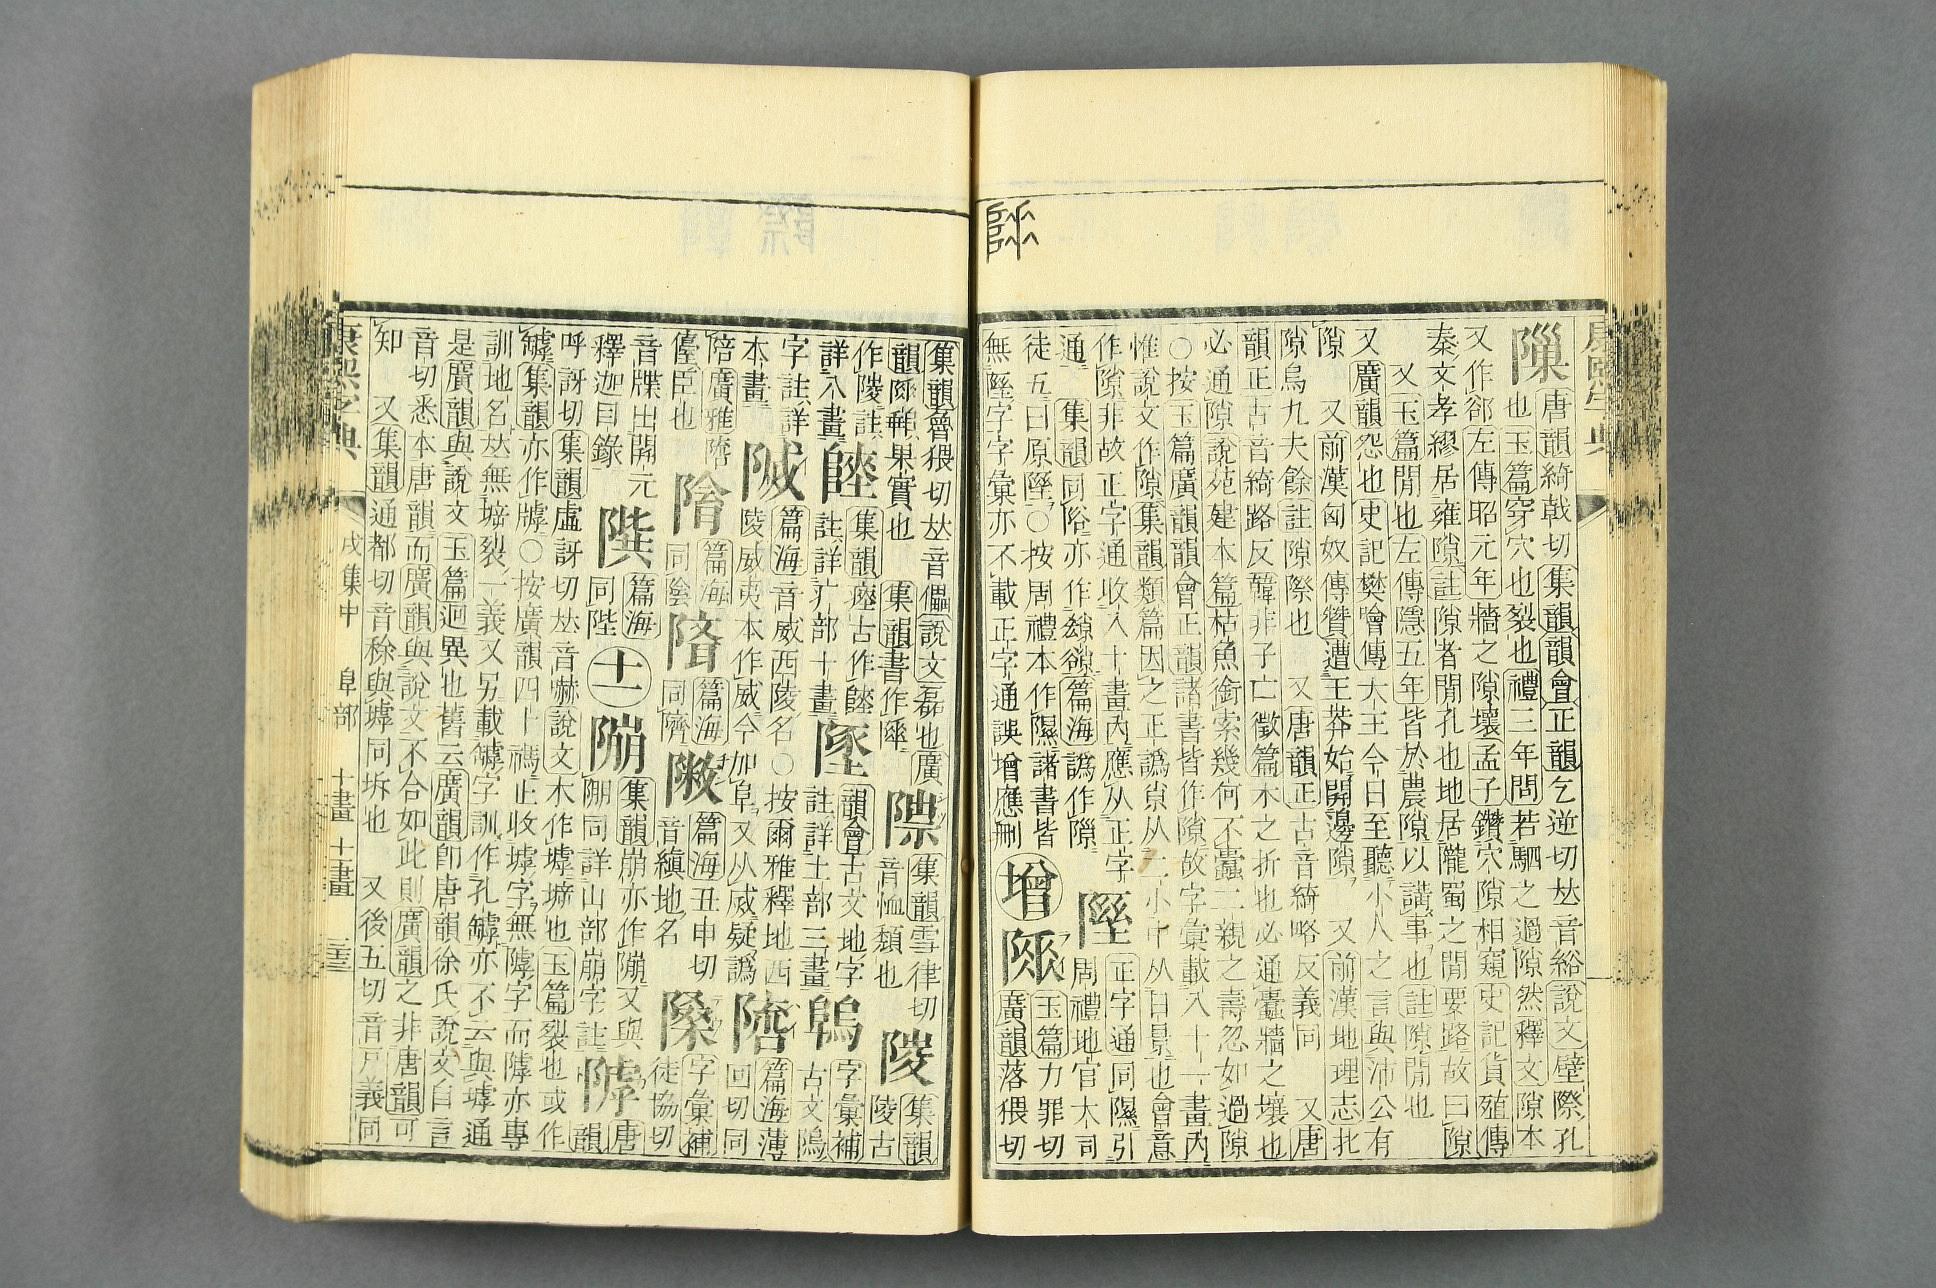 隟唐韻綺戟切集韻韻會正韻乞逆切𠀤音綌說文壁際孔
也玉篇穿穴也裂也禮三年問若駟之過隙然釋文隙本
又作郤左傳昭元年牆之隙壞孟子鑽穴隙相窺史記貨殖傳
秦文孝繆居雍隙註隙者閒孔也地居隴蜀之閒要路故曰隙
又玉篇閒也左傳隱五年皆於農隙以講事也註隙閒也
又廣韻怨也史記樊噲傳大王今日至聽小人之言與沛公有
隙 又前漢匈奴傳贊遭王莽始開邊隙 又前漢地理志北
隙烏丸夫餘註隙際也 又唐韻正古音綺略反義同 又唐
韻正古音綺路反韓非子亡徵篇木之折也必通蠹牆之壞也
必通隙說苑建本篇枯魚銜索幾何不蠹二親之壽忽如過隙
○按玉篇廣韻韻會正韻諸書皆作隙故字彙載入十一畫內
惟說文作隙集韻類篇因之正譌𡭴从二小中从日景也會意
作隙非故正字通收入十畫內應从正字
通 集韻同𧮼亦作
徒五曰原隰○按周禮本作隰諸書皆
無𨻶字字彙亦不載正字通誤增應刪
正字通同隰引
周禮地官大司
增
玉篇力罪切
廣韻落猥切
集韻魯猥切𠀤音儡說文磊也廣
韻果實也 集韻書作
集韻雪律切
音恤頹也
陵集韻
陵古
作陵註
詳八畫
集韻瘞古作
註詳疒部十畫
韻會古文地字
註詳土部三畫
字彙補
古文隖
字註詳
本畫
篇海音威西陵名○按爾雅釋地西
陵威夷本作威今加阜又从烕疑譌
篇海薄
回切同
陪廣雅
儓臣也
篇海
同陰
篇海
同隮
篇海丑申切
音縝地名
字彙補
徒協切
音牒出開元
釋迦目錄
篇海
同陛
十一
集韻崩亦作𨻱又與
同詳山部崩字註
唐
韻
呼訝切集韻虛訝切𠀤音嚇說文木作墟㙤也玉篇裂也或作
罅集韻亦作㙤○按廣韻四十禡止收墟字無罅字而罅亦專
訓地名𠀤無㙤裂一義又另載罅字訓作孔罅亦不云與墟通
是廣韻與說文玉篇迥異也舊云廣韻卽唐韻徐氏說文自言
音切悉本唐韻而廣韻與說文不合如此則廣韻之非唐韻可
知 又集韻通都切音稌與墟同坼也 又後五切音戸義同
康熙字典
戌集中 阜部 十畫 十一畫
康熙字典